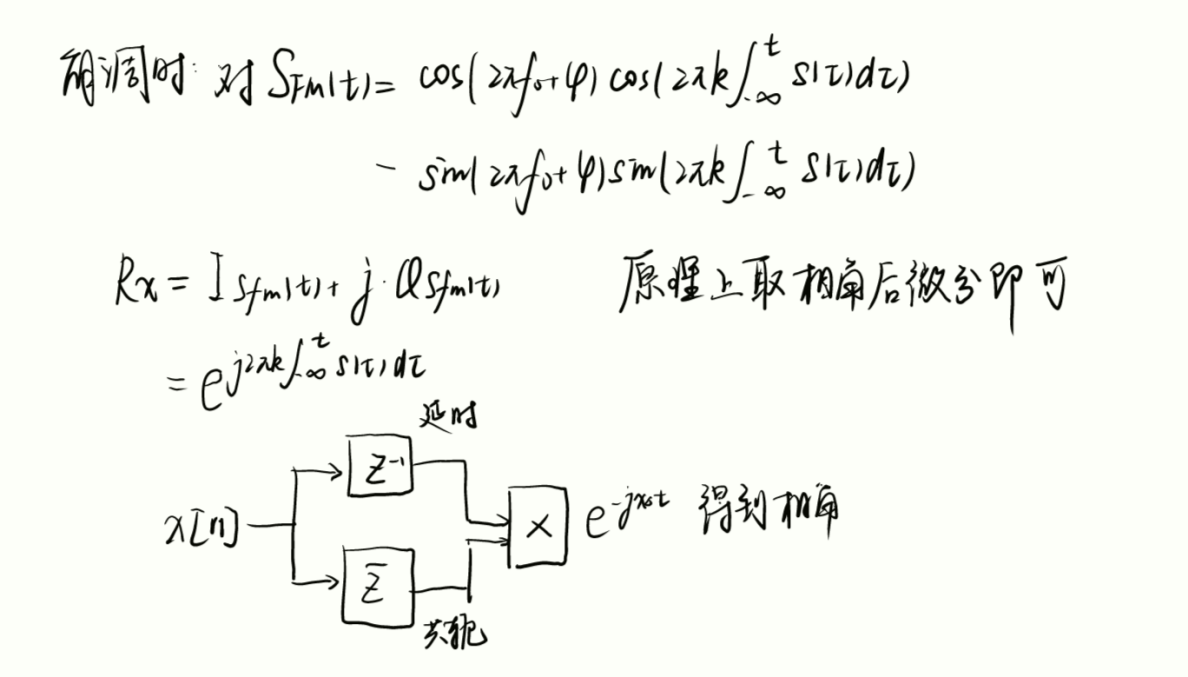 解调时: 对 S_FM(t) = cos(2πf₀+φ) cos(2πk∫_{-∞}^{t} s(τ)dτ)
- sin(2πf₀+φ) sin(2πk∫_{-∞}^{t} s(τ)dτ)
Rx = I s_fm(t) + j·Q s_fm(t) 原理上取相角后微分即可
= e^{j2πk∫_{-∞}^{t} s(τ)dτ}
延时
z⁻¹
x[n] × 得到相角
z̄
共轭